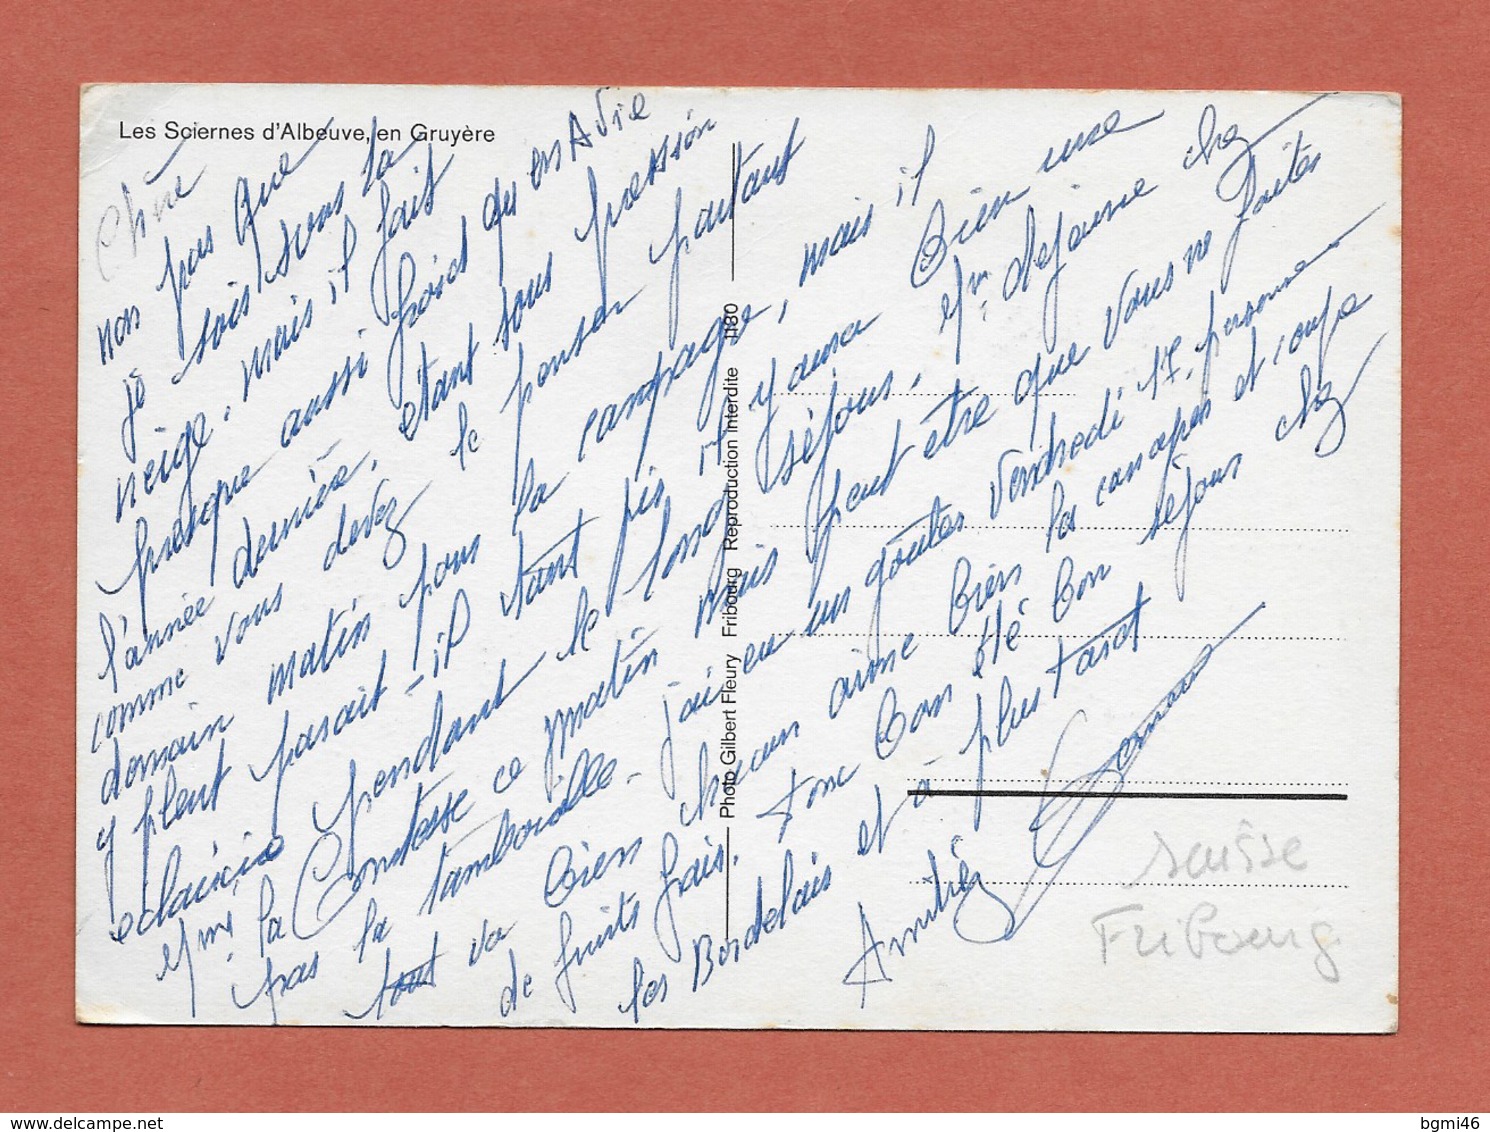 Les Sciernes d'Albeuve, en Gruyère
non pas que
je sois sous la
neige. mais il fait
presque aussi froid qu en
l'année dernière. étant sous pression
comme vous devez le penser partant
demain matin pour la campagne, mais il
y pleut parait-il tant pis il y aura bien une
eclaircie pendant le long séjour.
la Comtesse ce matin mais peut être que vous ne faites
pas la tambouille. j'ai eu un gouter vendredi 17. personne
tout va bien chacun aime bien les canapes et coupe
de fruits frais. donc bon été bon séjour chez
les Bordelais et à plus tard
Amitiés
Photo Gilbert Fleury Fribourg Reproduction interdite 1180
Suisse
Fribourg
bgmi46